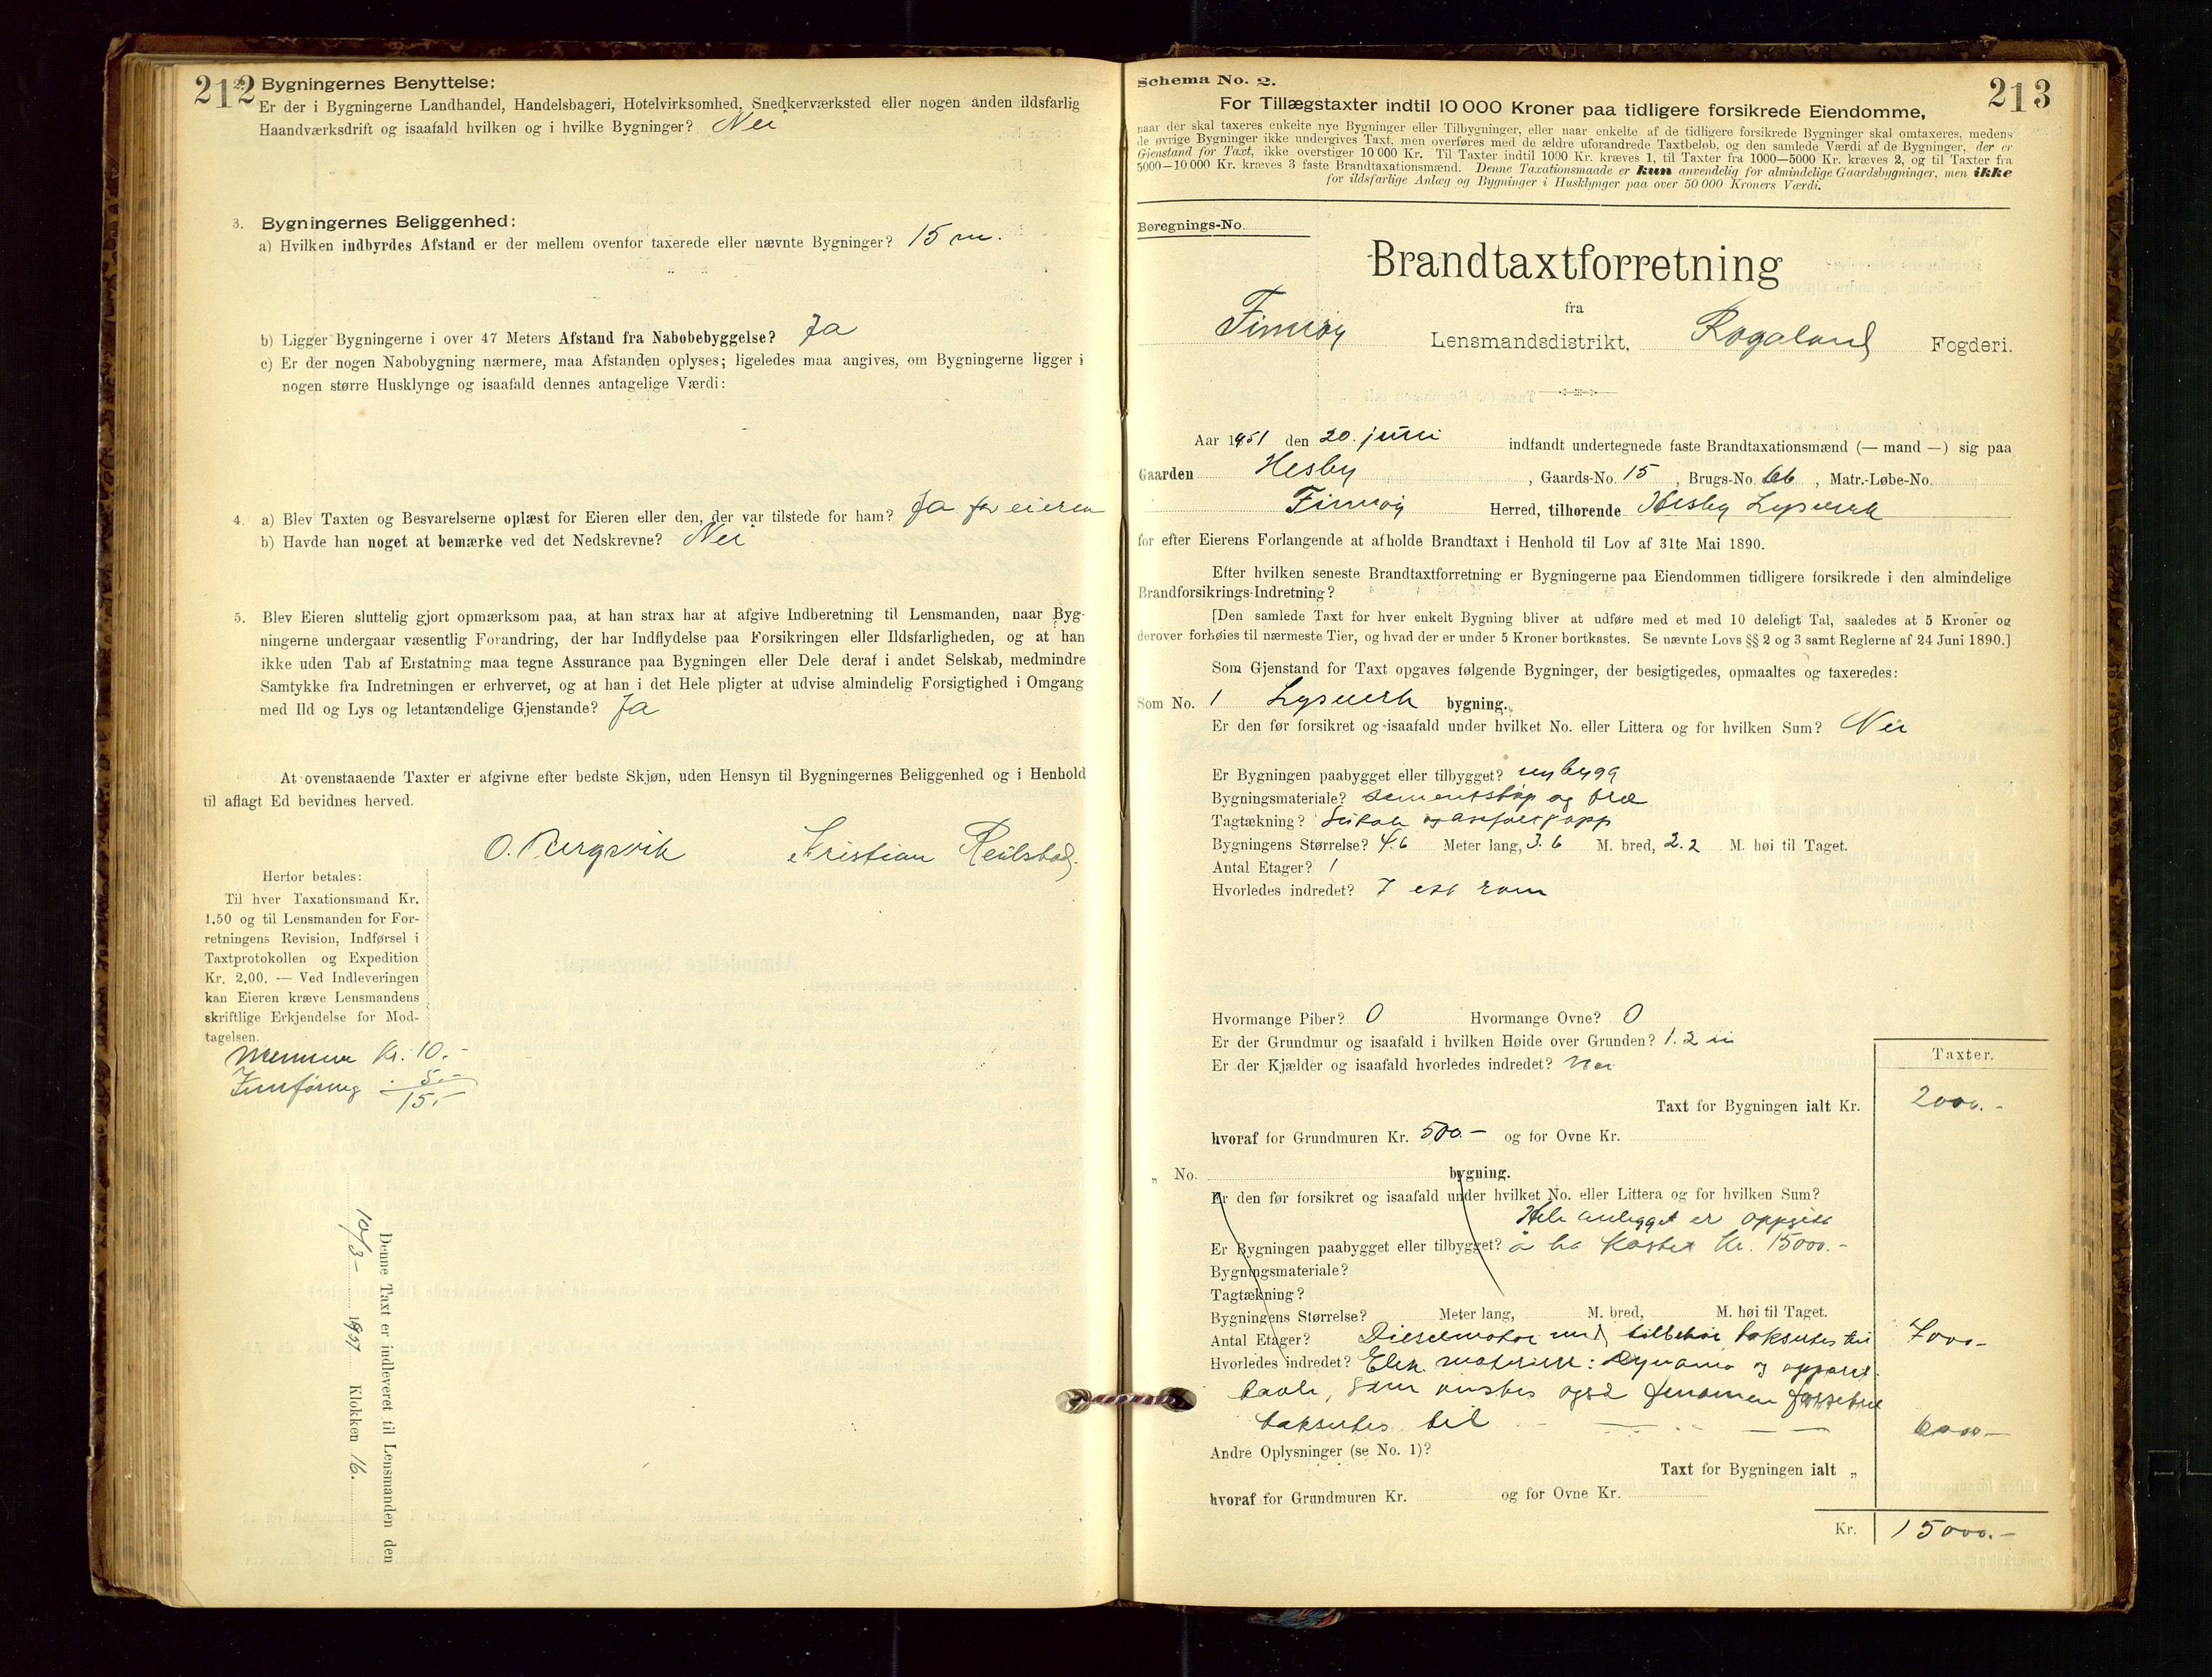 212
2. Bygningernes Benyttelse:
Er der i Bygningerne Landhandel, Handelsbageri, Hotelvirksomhed, Snedkerværksted eller nogen anden ildsfarlig
Haandværksdrift og isaafald hvilken og i hvilke Bygninger? Nei
3. Bygningernes Beliggenhed:
a) Hvilken indbyrdes Afstand er der mellem ovenfor taxerede eller nævnte Bygninger? 15 m.
b) Ligger Bygningerne i over 47 Meters Afstand fra Nabobebyggelse? Ja
c) Er der nogen Nabobygning nærmere, maa Afstanden oplyses; ligeledes maa angives, om Bygningerne ligger i
nogen større Husklynge og isaafald dennes antagelige Værdi:
4. a) Blev Taxten og Besvarelserne oplæst for Eieren eller den, der var tilstede for ham? Ja for eieren
b) Havde han noget at bemærke ved det Nedskrevne? Nei
5. Blev Eieren sluttelig gjort opmærksom paa, at han strax har at afgive Indberetning til Lensmanden, naar Byg-
ningerne undergaar væsentlig Forandring, der har Indflydelse paa Forsikringen eller Ildsfarligheden, og at han
ikke uden Tab af Erstatning maa tegne Assurance paa Bygningen eller Dele deraf i andet Selskab, medmindre
Samtykke fra Indretningen er erhvervet, og at han i det Hele pligter at udvise almindelig Forsigtighed i Omgang
med Ild og Lys og letantændelige Gjenstande? Ja
At ovenstaaende Taxter er afgivne efter bedste Skjøn, uden Hensyn til Bygningernes Beliggenhed og i Henhold
til aflagt Ed bevidnes herved.
O. Bergsvik Kristian
Herfor betales:
Til hver Taxationsmand Kr.
1.50 og til Lensmanden for For-
retningens Revision, Indførsel i
Taxtprotokollen og Expedition
Kr. 2,00. — Ved Indleveringen
kan Eieren kræve Lensmandens
skriftlige Erkjendelse for Mod-
tagelsen.
Mennene Kr. 10.-
Innføring . 5.-
15.-
Denne Taxt er indleveret til Lensmanden den
10/3- 1951 Klokken 16.
Schema No. 2.
213
For Tillægstaxter indtil 10 000 Kroner paa tidligere forsikrede Eiendomme,
naar der skal taxeres enkelte nye Bygninger eller Tilbygninger, eller naar enkelte af de tidligere forsikrede Bygninger skal omtaxeres, medens
de øvrige Bygninger ikke undergives Taxt, men overføres med de ældre uforandrede Taxtbeløb, og den samlede Værdi af de Bygninger, der er
Gjenstand for Taxt, ikke overstiger 10 000 Kr. Til Taxter indtil 1000 Kr. kræves 1, til Taxter fra 1000—5000 Kr. kræves 2, og til Taxter fra
5000—10 000 Kr. kræves 3 faste Brandtaxationsmænd. Denne Taxationsmaade er kun anvendelig for almindelige Gaardsbygninger, men ikke
for ildsfarlige Anlæg og Bygninger i Husklynger paa over 50 000 Kroners Værdi.
Beregnings-No.
Brandtaxtforretning
fra
Finnøy Lensmandsdistrikt, Rogaland Fogderi.
Aar 1951 den 20. juni indfandt undertegnede faste Brandtaxationsmænd (— mand —) sig paa
Gaarden Hesby, Gaards-No. 15, Brugs-No. 66, Matr.-Løbe-No.
Finnøy Herred, tilhørende Hesby Lysverk
for efter Eierens Forlangende at afholde Brandtaxt i Henhold til Lov af 31te Mai 1890.
Efter hvilken seneste Brandtaxtforretning er Bygningerne paa Eiendommen tidligere forsikrede i den almindelige
Brandforsikrings-Indretning?
[Den samlede Taxt for hver enkelt Bygning bliver at udføre med et med 10 deleligt Tal, saaledes at 5 Kroner og
derover forhøies til nærmeste Tier, og hvad der er under 5 Kroner bortkastes. Se nævnte Lovs §§ 2 og 3 samt Reglerne af 24 Juni 1890.]
Som Gjenstand for Taxt opgaves følgende Bygninger, der besigtigedes, opmaaltes og taxeredes:
Som No. 1 Lysverk bygning.
Er den før forsikret og isaafald under hvilket No. eller Littera og for hvilken Sum? Nei
Er Bygningen paabygget eller tilbygget? nybygg
Bygningsmateriale? sementstøp og tre
Tagtækning? og asfaltpapp
Bygningens Størrelse? 4.6 Meter lang, 3.6 M. bred, 2.2 M. høi til Taget.
Antal Etager? 1
Hvorledes indredet? I ett rom
Hvormange Piber? 0 Hvormange Ovne? 0
Er der Grundmur og isaafald i hvilken Høide over Grunden? 1.2 m
Er der Kjælder og isaafald hvorledes indredet? Nei
Taxter.
Taxt for Bygningen ialt Kr. 2000.-
hvoraf for Grundmuren Kr. 500.- og for Ovne Kr.
„ No. bygning.
Er den før forsikret og isaafald under hvilket No. eller Littera og for hvilken Sum?
Hele anlegget er oppgitt
Er Bygningen paabygget eller tilbygget? å ha kostet kr. 15000.-
Bygningsmateriale?
Tagtækning?
Bygningens Størrelse? Meter lang, M. bred, M. høi til Taget.
Antal Etager? Dieselmotor med tilbehør taksertes til 7000-
Hvorledes indredet? Elek. materiell: Dynamo og apparat
tavle, som ønskes også
taksertes til - — - - — — 6000-
Andre Oplysninger (se No. 1)?
Taxt for Bygningen ialt „
hvoraf for Grundmuren Kr. og for Ovne Kr.
Kr. 15000.-